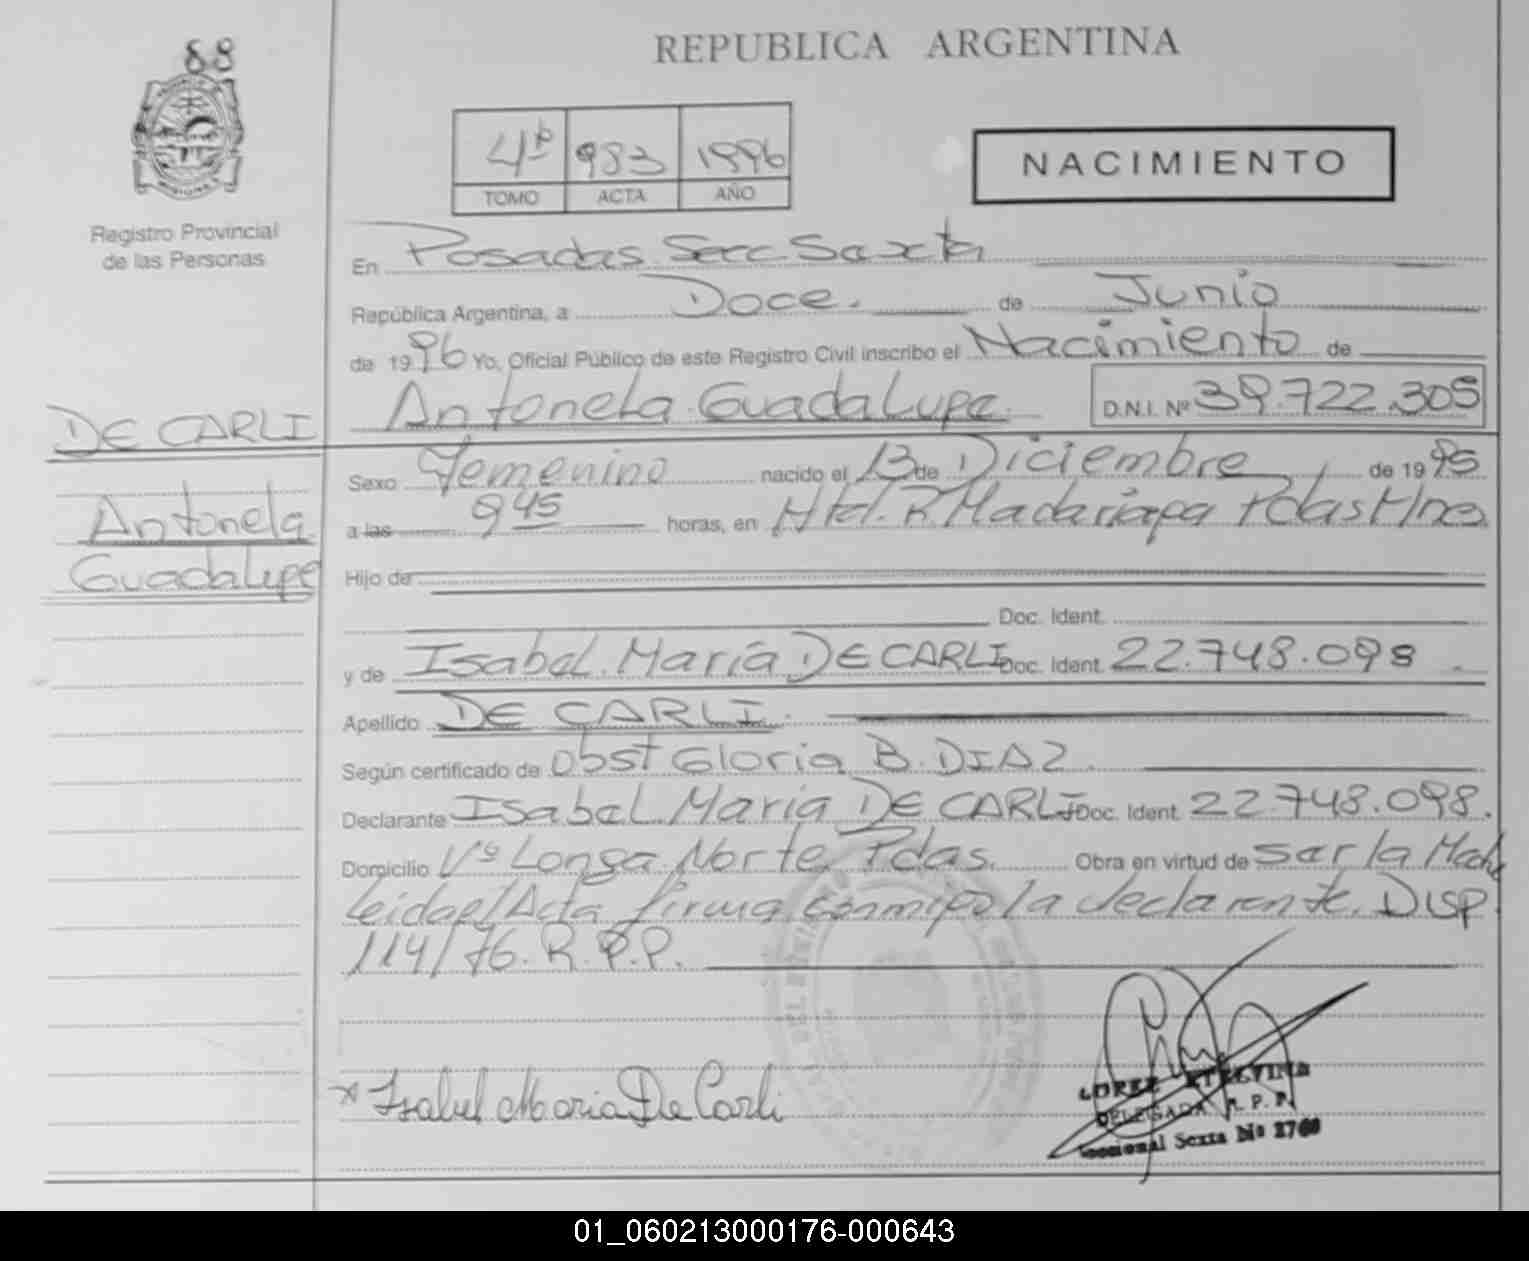 88
REPUBLICA ARGENTINA
4º 983 1996
TOMO ACTA AÑO
NACIMIENTO
Registro Provincial
de las Personas
En Posadas Secc Sexta
República Argentina, a Doce. de Junio
de 1996 Yo, Oficial Público de este Registro Civil inscribo el Nacimiento de
Antonela Guadalupe D.N.I. Nº 39.722.305
DE CARLI
Antonela
Guadalupe
Sexo Femenino nacido el 13 de Diciembre de 1995
a las 9 45 horas, en Htal. R. Madariaga Pdas Mnes
Hijo de
Doc. Ident.
y de Isabel María DE CARLI Doc. Ident. 22.748.098
Apellido DE CARLI.
Según certificado de Obst Gloria B. DIAZ.
Declarante Isabel María DE CARLI Doc. Ident. 22.748.098.
Domicilio Vº Longa Norte Pdas. Obra en virtud de ser la Madre
leida el Acta firma conmigo la declarante. Disp.
114/76. R.P.P.
x Isabel Maria De Carli
LOPEZ ETELVINA
DELEGADA R. P. P.
Seccional Sexta Nº 2760
01_060213000176-000643